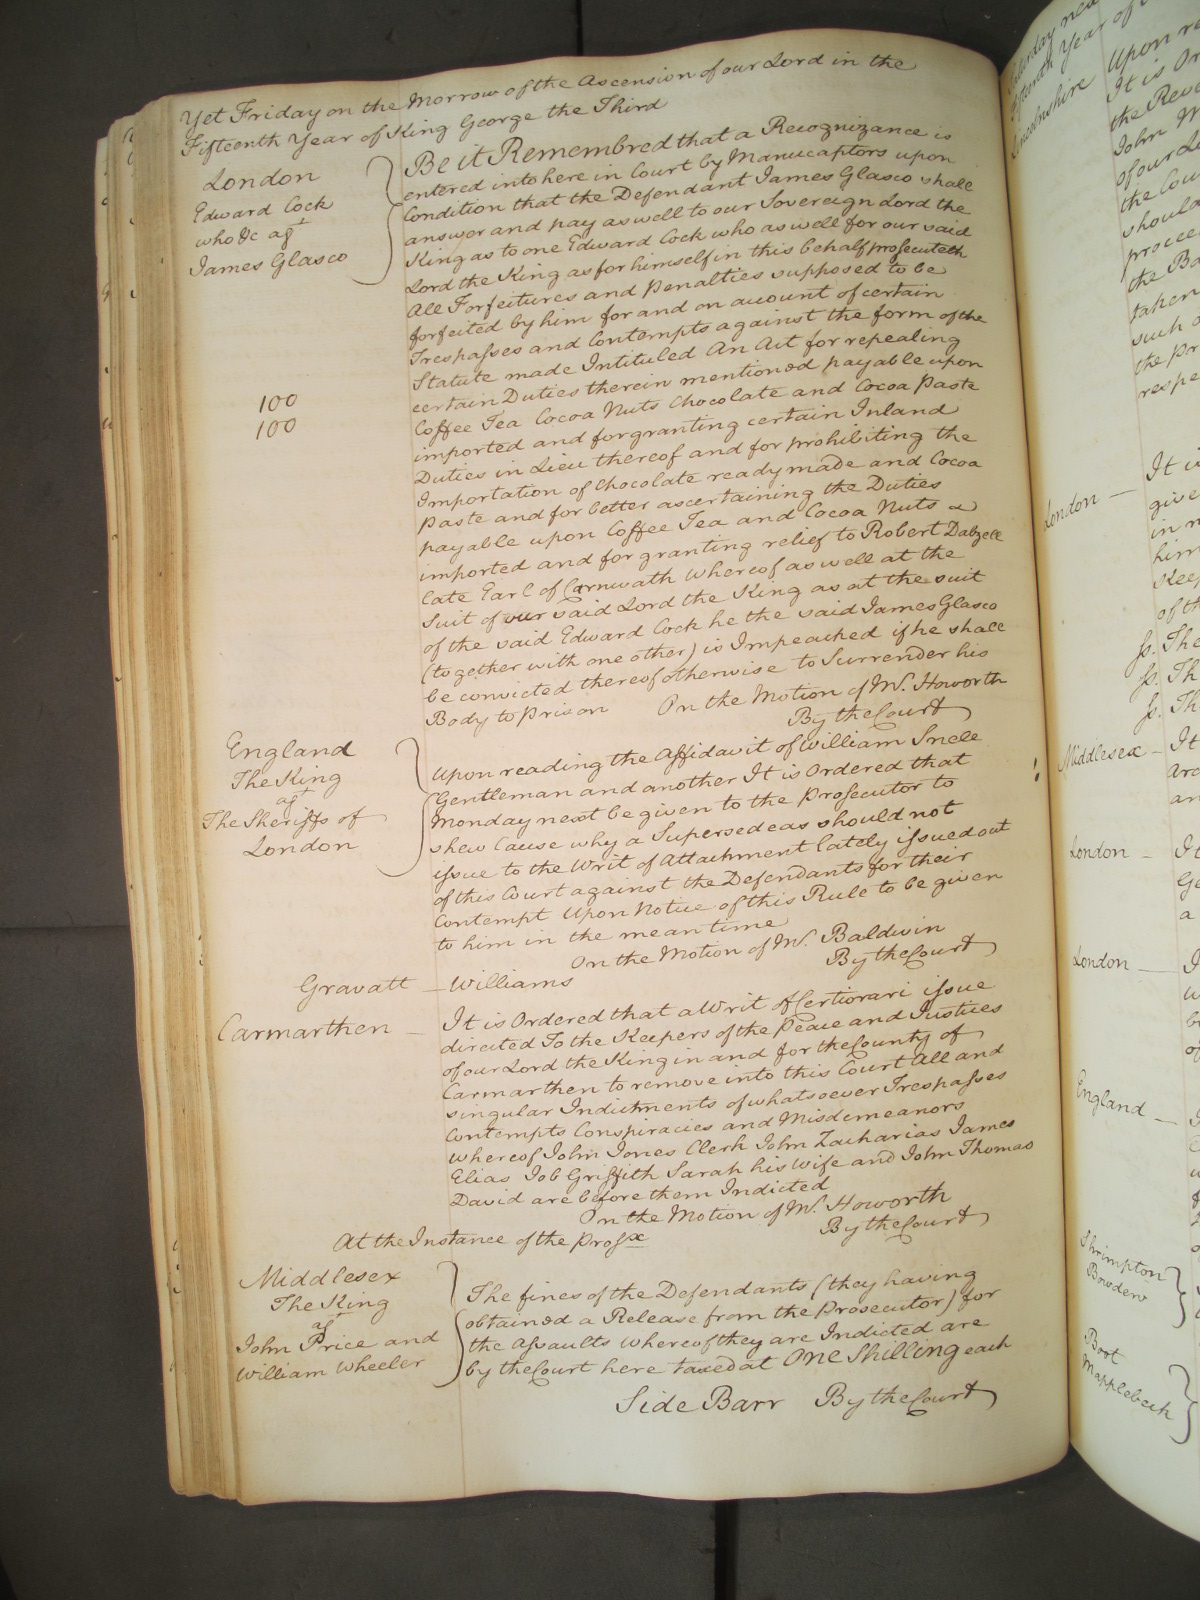 Yet Friday on the Morrow of the Ascension of our Lord in the
Fifteenth Year of King George the Third
London
Edward Cock
who &c agt
James Glasco
Be it Remembred that a Recognizance is
entered into here in Court by Manucaptors upon
Condition that the Defendant James Glasco shall
answer and pay as well to our Sovereign Lord the
King as to one Edward Cock who as well for our said
Lord the King as for himself in this behalf prosecuteth
All Forfeitures and Penalties supposed to be
forfeited by him for and on account of certain
Trespasses and Contempts against the form of the
Statute made Intituled An Act for repealing
certain Duties therein mentioned payable upon
100
Coffee Tea Cocoa Nuts Chocolate and Cocoa Paste
100
imported and for granting certain Inland
Duties in Lieu thereof and for prohibiting the
Importation of Chocolate ready made and Cocoa
Paste and for better ascertaining the Duties
payable upon Coffee Tea and Cocoa Nuts
imported and for granting relief to Robert Dalzell
late Earl of Carnwath whereof as well at the
Suit of our said Lord the King as at the suit
of the said Edward Cock he the said James Glasco
(together with one other) is Impeached if he shall
be convicted thereof otherwise to Surrender his
Body to Prison On the Motion of Mr. Howorth
By the Court
England
The King
agt
The Sheriffs of
London
Upon reading the Affidavit of William Snell
Gentleman and another It is Ordered that
Monday next be given to the Prosecutor to
shew Cause why a Supersedeas should not
issue to the Writ of Attachment lately issued out
of this Court against the Defendants for their
Contempt Upon Notice of this Rule to be given
to him in the mean time
On the Motion of Mr. Baldwin
By the Court
Gravatt – Williams
Carmarthen –
It is Ordered that a Writ of Certiorari issue
directed To the Keepers of the Peace and Justices
of our Lord the King in and for the County of
Carmarthen to remove into this Court All and
singular Indictments of whatsoever Trespasses
Contempts Conspiracies and Misdemeanors
whereof John Jones Clerk John Zacharias James
Elias Job Griffith Sarah his Wife and John Thomas
David are before them Indicted
On the Motion of Mr. Howorth
At the Instance of the Prosx By the Court
Middlesex
The King
agt
John Price and
William Wheeler
The fines of the Defendants (they having
obtained a Release from the Prosecutor) for
the Assaults whereof they are Indicted are
by the Court here taxed at One Shilling each
Side Barr By the Court
Lincolnshire
London –
Middlesex –
London –
London –
England –
Shrimpton
Bowden
Bort
Mapplebeck